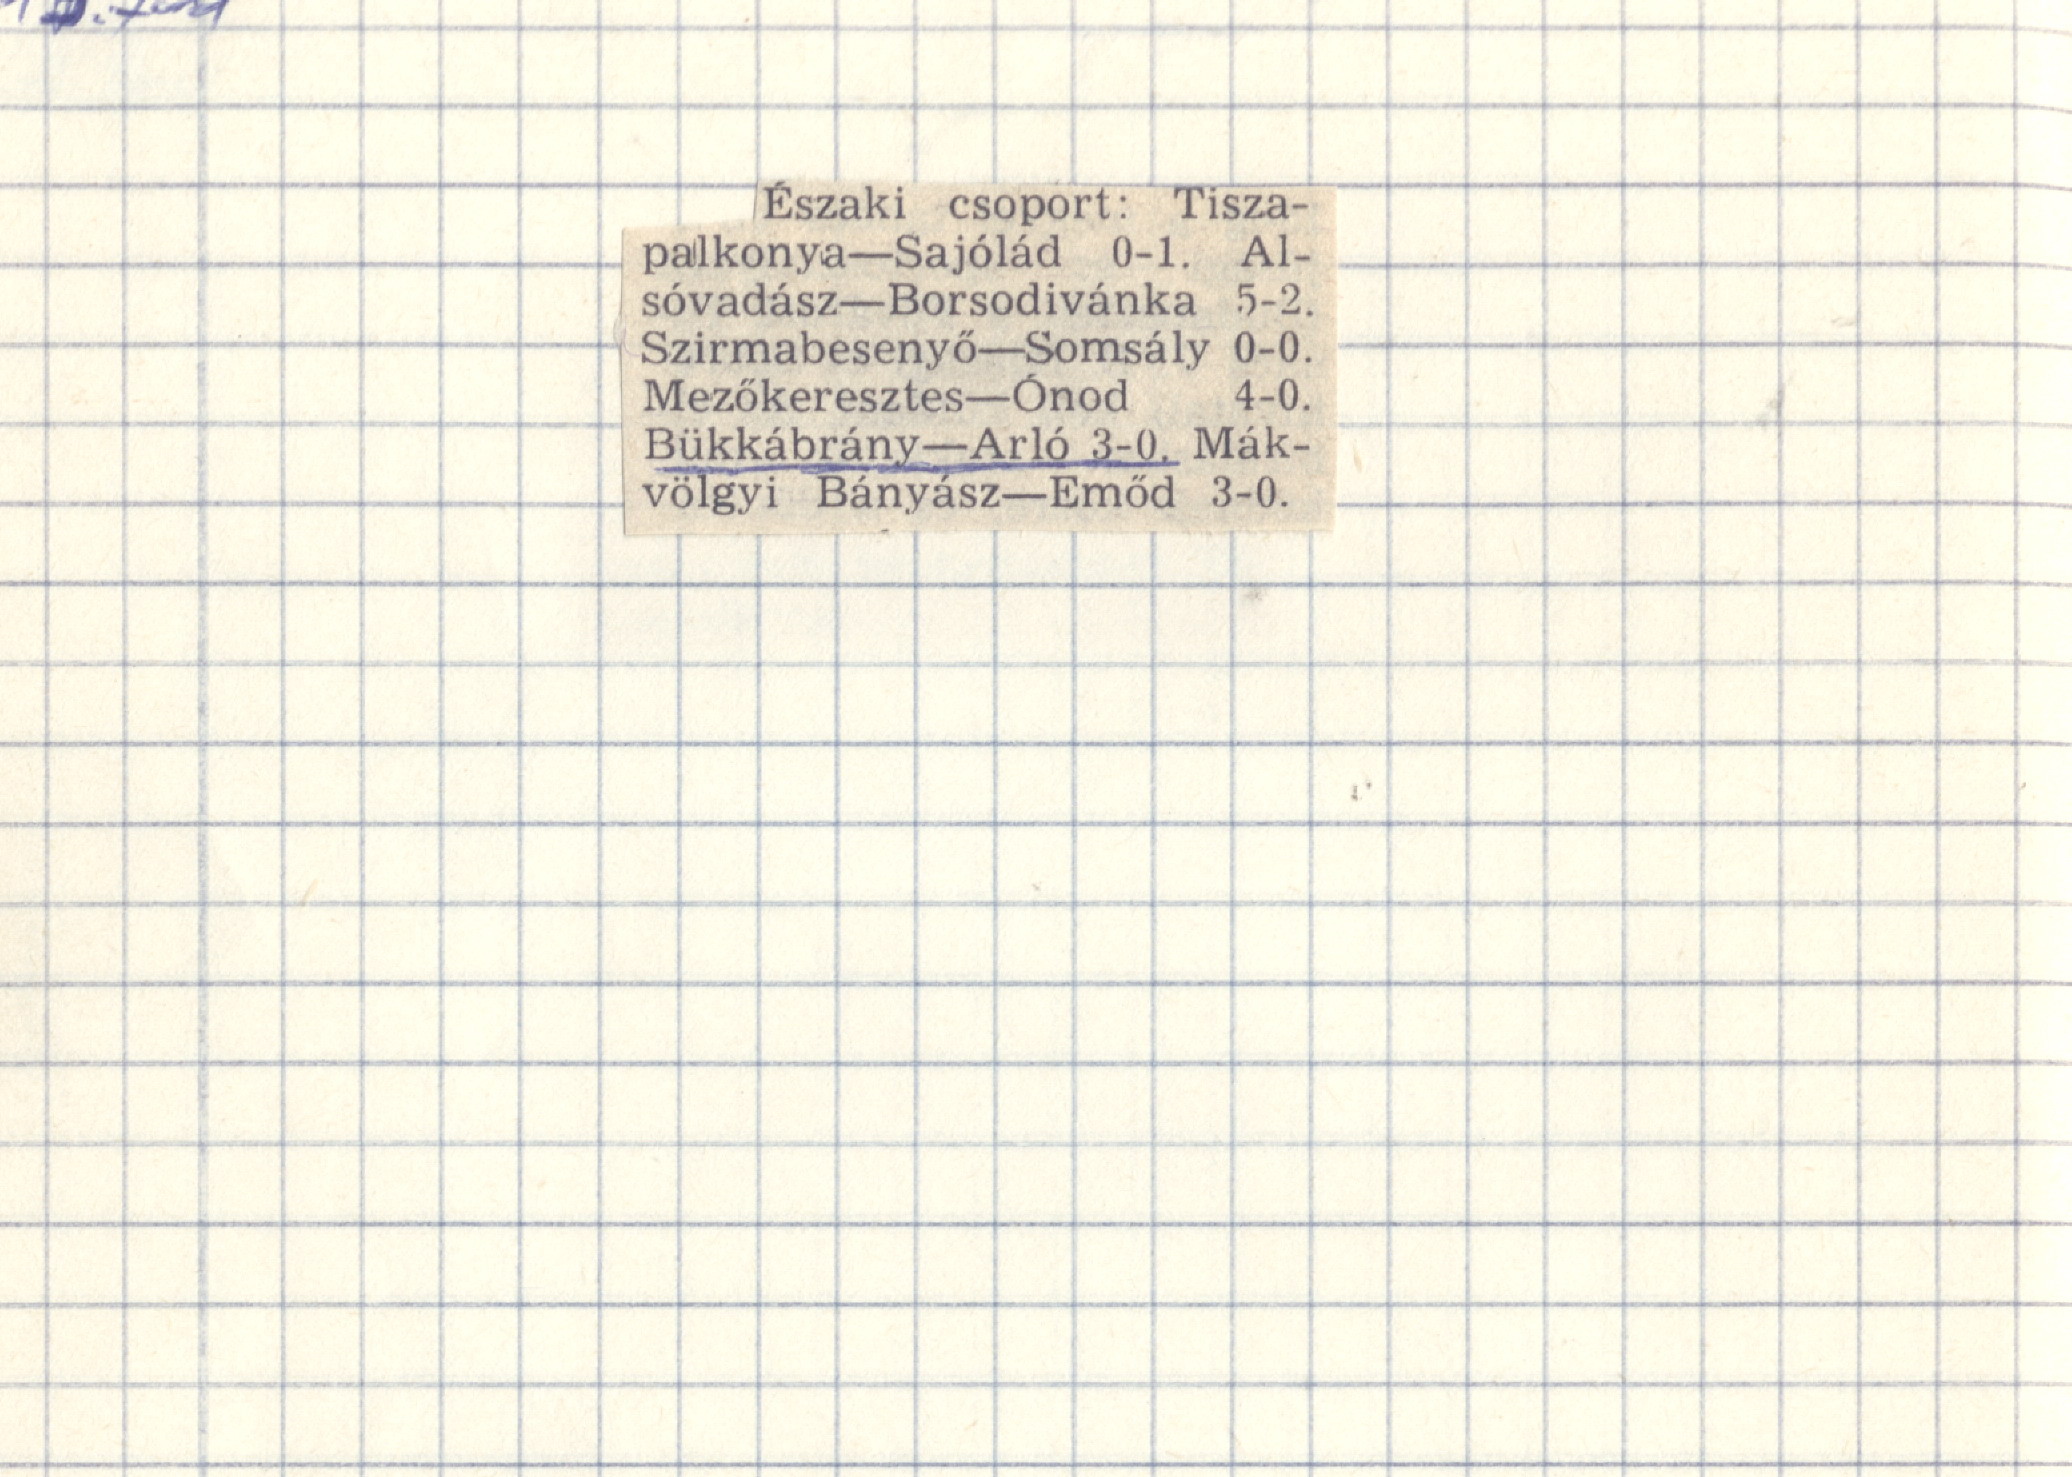 Északi csoport: Tisza-
palkonya—Sajólád 0-1. Al-
sóvadász—Borsodivánka 5-2.
Szirmabesenyő—Somsály 0-0.
Mezőkeresztes—Ónod 4-0.
Bükkábrány—Arló 3-0. Mák-
völgyi Bányász—Emőd 3-0.